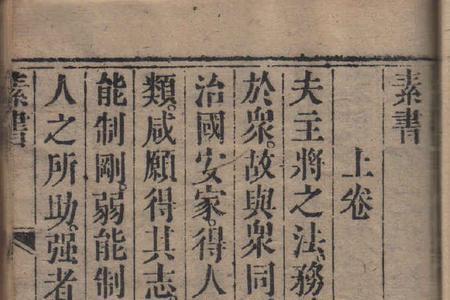 素書
上卷
夫主將之法務
於衆故與衆同
治國安家得人
類咸願得其志
能制剛弱能制
人之所助强者
素書